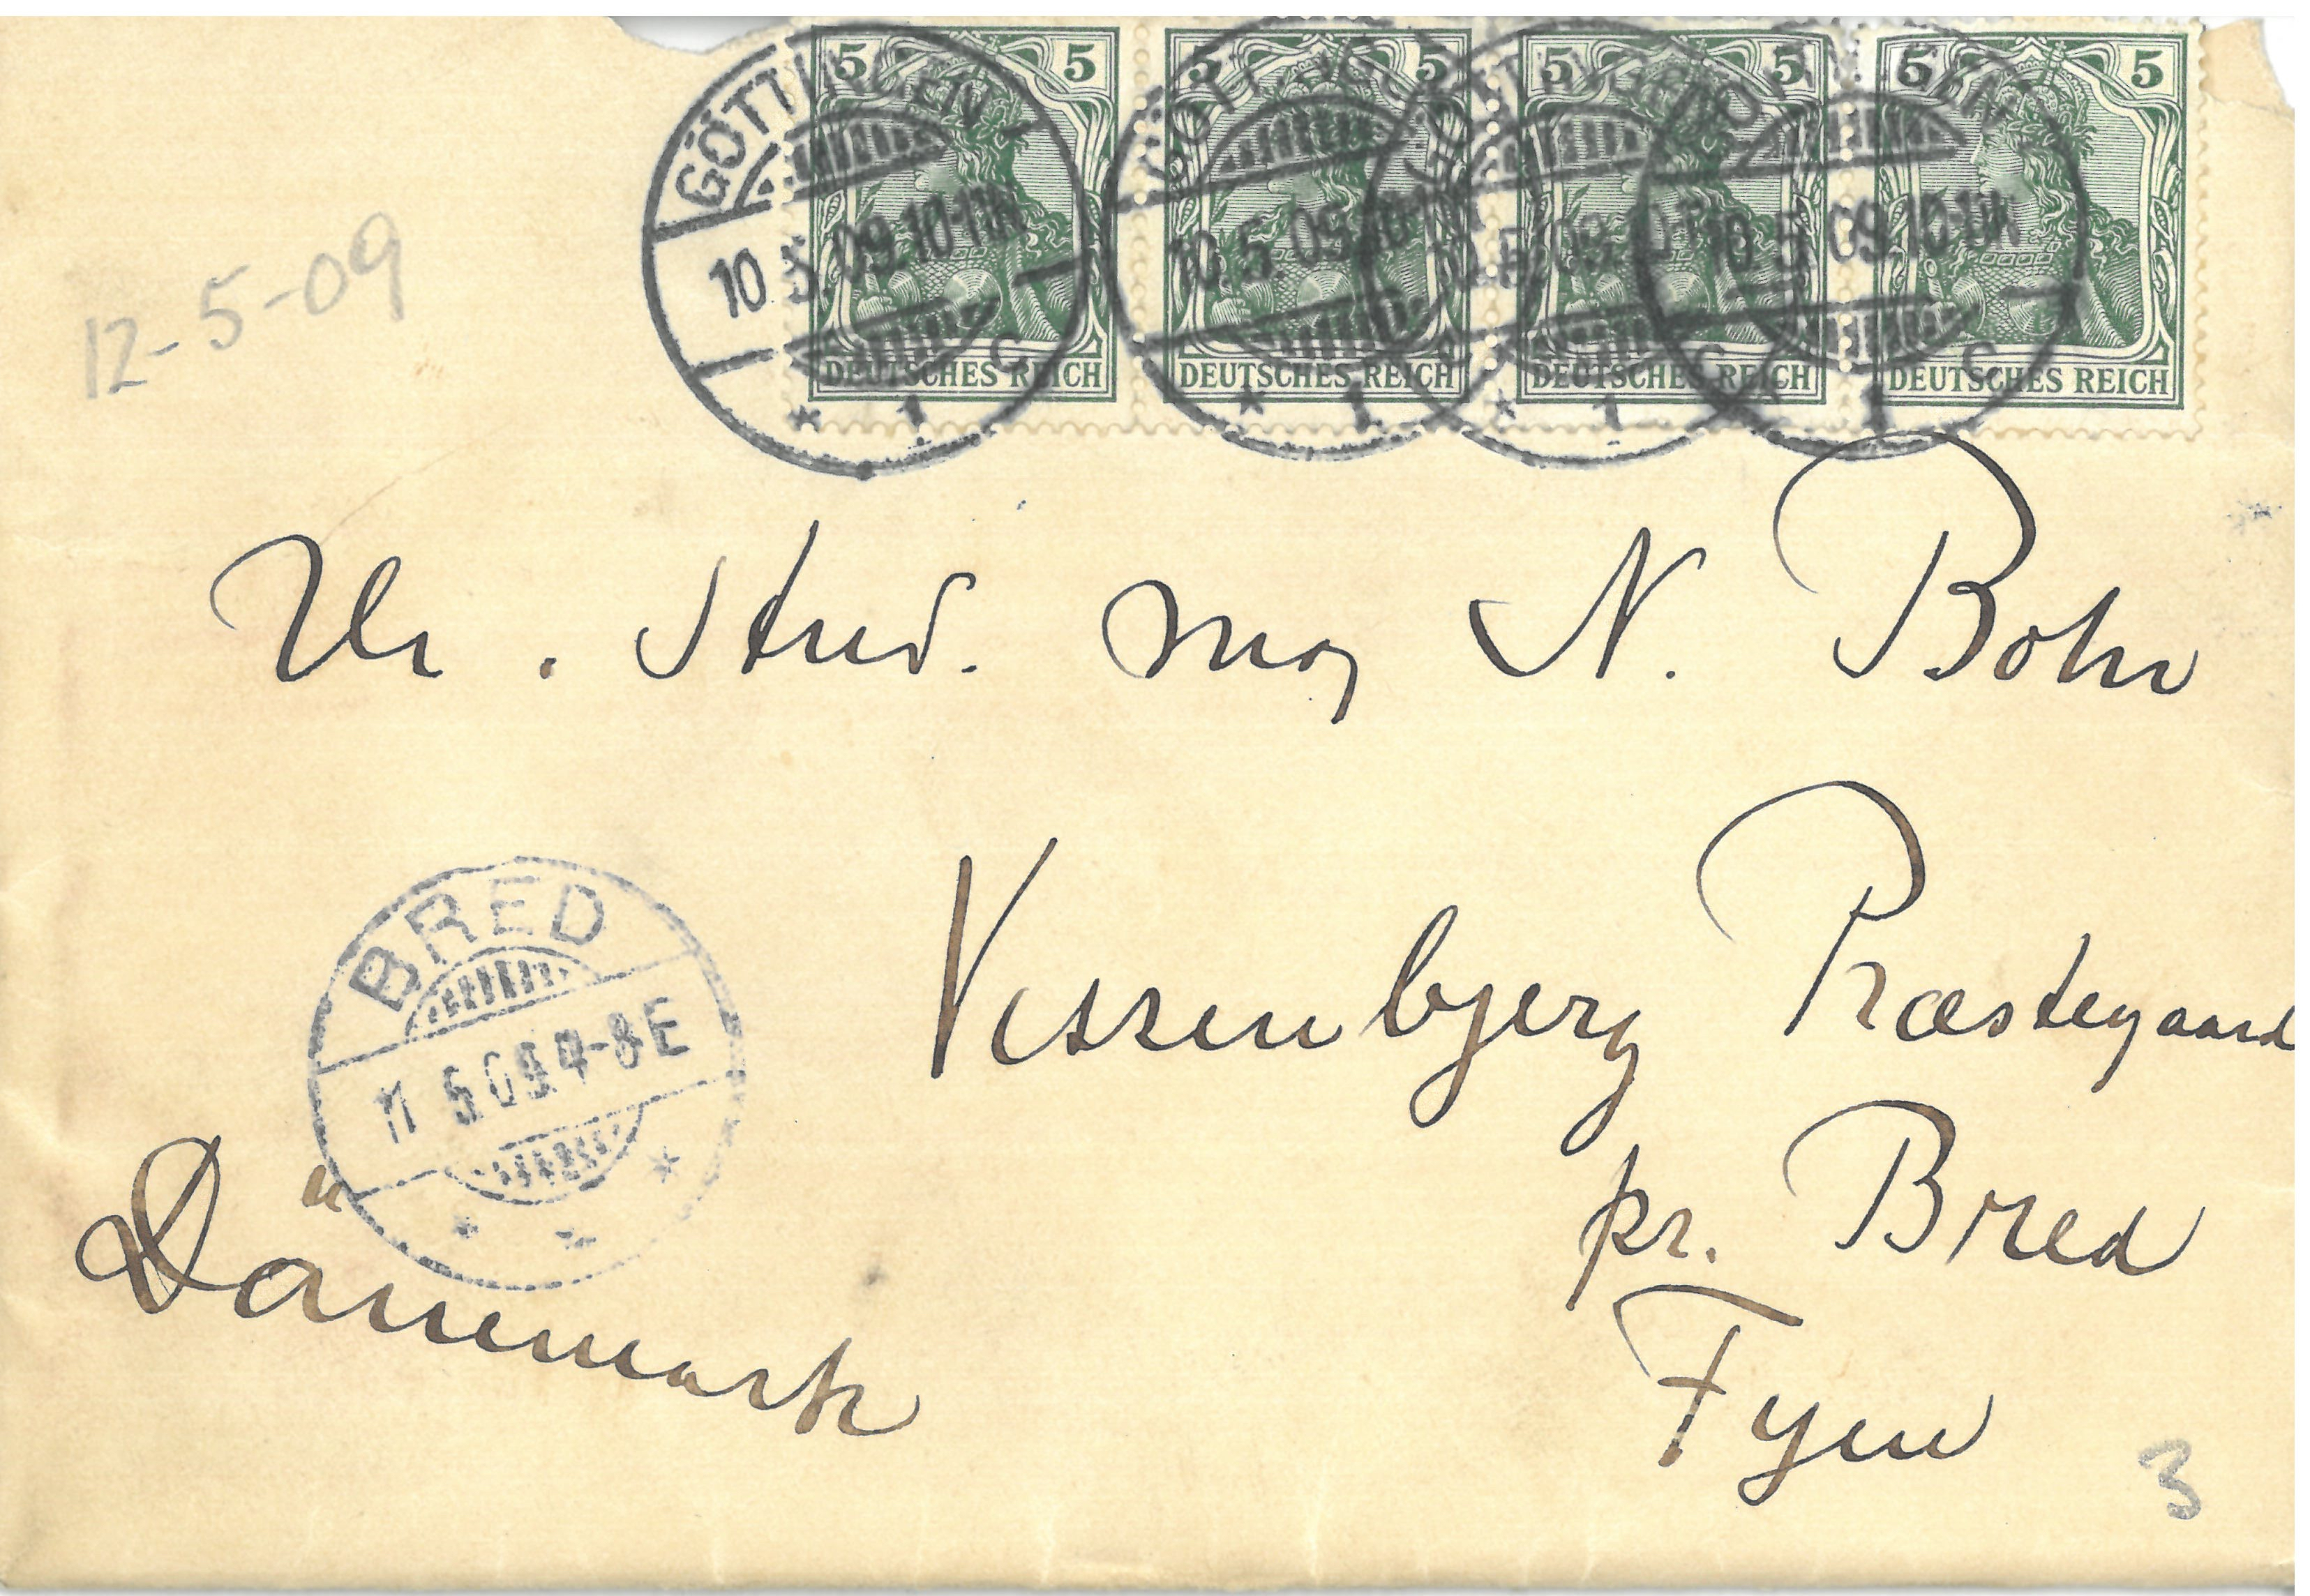 5 5 5 5 5 5 5 5
DEUTSCHES REICH DEUTSCHES REICH DEUTSCHES REICH DEUTSCHES REICH
GÖTTINGEN
10.5.09.10-11N
* 1 c
GÖTTINGEN
10.5.09.10-11N
* 1
GÖTTINGEN
* 1 c
GÖTTINGEN
10.5.09.10-11N
1 c
12-5-09
Hr. Stud. mag N. Bohr
Vissenbjerg Præstegaard
pr. Bred
Fyen
BRED
11 5 09 4-8E
Dänemark
3